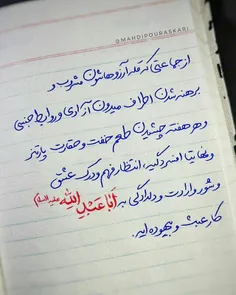 @MAHDIPOURASKARI
از جماعتی که قله آرزوهاشون مشروب و
برهنه شدن اطراف میدون آزادی و روابط جنسی
و هر هفته چشیدن طعم خفت و حقارت پارتنر
و نهایتا افسردگیه، انتظار فهم و درک عشق
و شور و ارادت و دلدادگی به أَبَا عَبْدِ اللّٰهِ (علیه‌السلام)
کار عبث و بیهوده ایه.